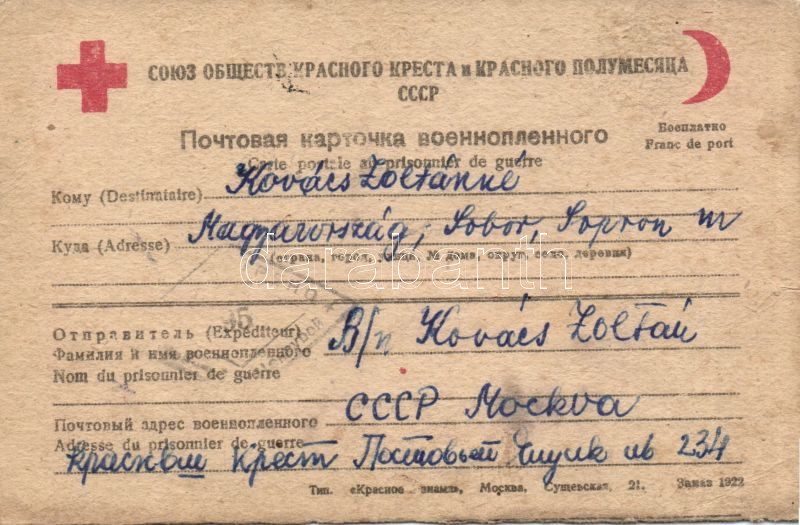 СОЮЗ ОБЩЕСТВ КРАСНОГО КРЕСТА и КРАСНОГО ПОЛУМЕСЯЦА
СССР
Почтовая карточка военнопленного
Carte postale au prisonnier de guerre
Бесплатно
Franc de port
Кому (Destinataire) Kovács Zoltánné
Куда (Adresse) Magyarország, Sobor, Sopron m
(страна, город, улица, № дома, округ, село, деревня)
Отправитель (Expéditeur) В/п Kovács Zoltán
Фамилия и имя военнопленного
Nom du prisonnier de guerre
Почтовый адрес военнопленного СССР Москва
Adresse du prisonnier de guerre
Крест 234
Тип. «Красное знамя», Москва, Сущевская, 21. Заказ 1922
databanth